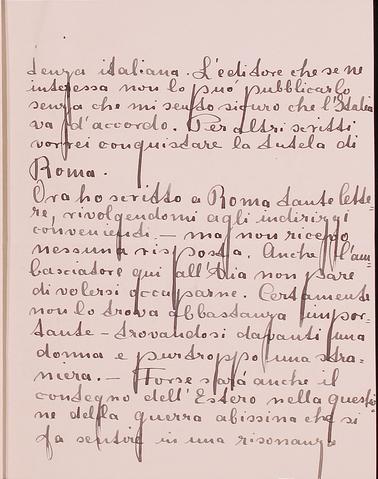 denza italiana. L'editore che se ne
interessa non lo può pubblicarlo
senza che mi sento siguro che l'Italia
va d'accordo. Per altri scritti
vorrei conquistare la tutela di
Roma.
Ora ho scritto a Roma tante lette-
re, rivolgendomi agli indirizzi
convenienti — ma non ricevo
nessuna risposta. Anche l'am-
basciatore qui all'Aia non pare
di volersi occuparne. Certamente
non lo trova abbastanza impor-
tante - trovandosi davanti una
donna e purtroppo una stra-
niera. — Forse sarà anche il
contegno dell'Estero nella questio-
ne della guerra abissina che si
fa sentire in una risonanza